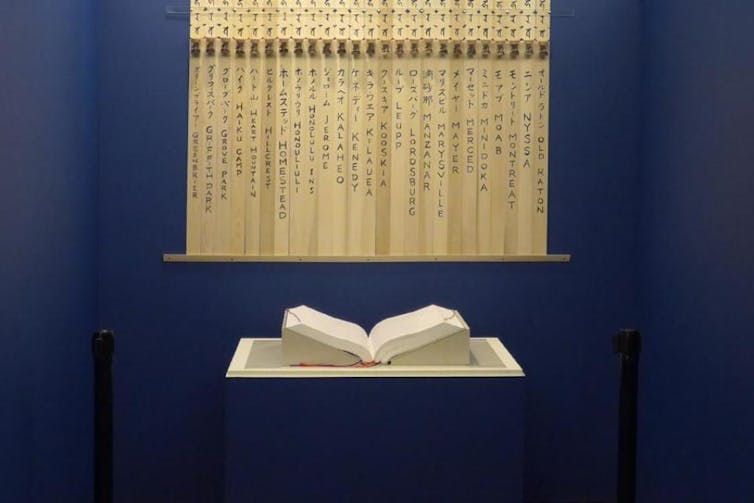 オールド ラトン OLD RATON
ニッサ NYSSA
モントリート MONTREAT
モアブ MOAB
ミニドカ MINIDOKA
マーセット MERCED
メイヤー MAYER
マリスビル MARYSVILLE
MANZANAR
ローズバーグ LORDSBURG
ループ LEUPP
クースキア KOOSKIA
キラウエア KILAUEA
ケネディー KENEDY
カラヘオ KALAHEO
ジェローム JEROME
ホノルル HONOLULU INS
ホノウリウリ HONOULIULI
ホームステッド HOMESTEAD
ヒルクレスト HILLCREST
ハート山 HEART MOUNTAIN
ハイク HAIKU CAMP
グローブパーク GROVE PARK
グリフスパーク GRIFFITH PARK
グリーンブライアー GREENBRIER